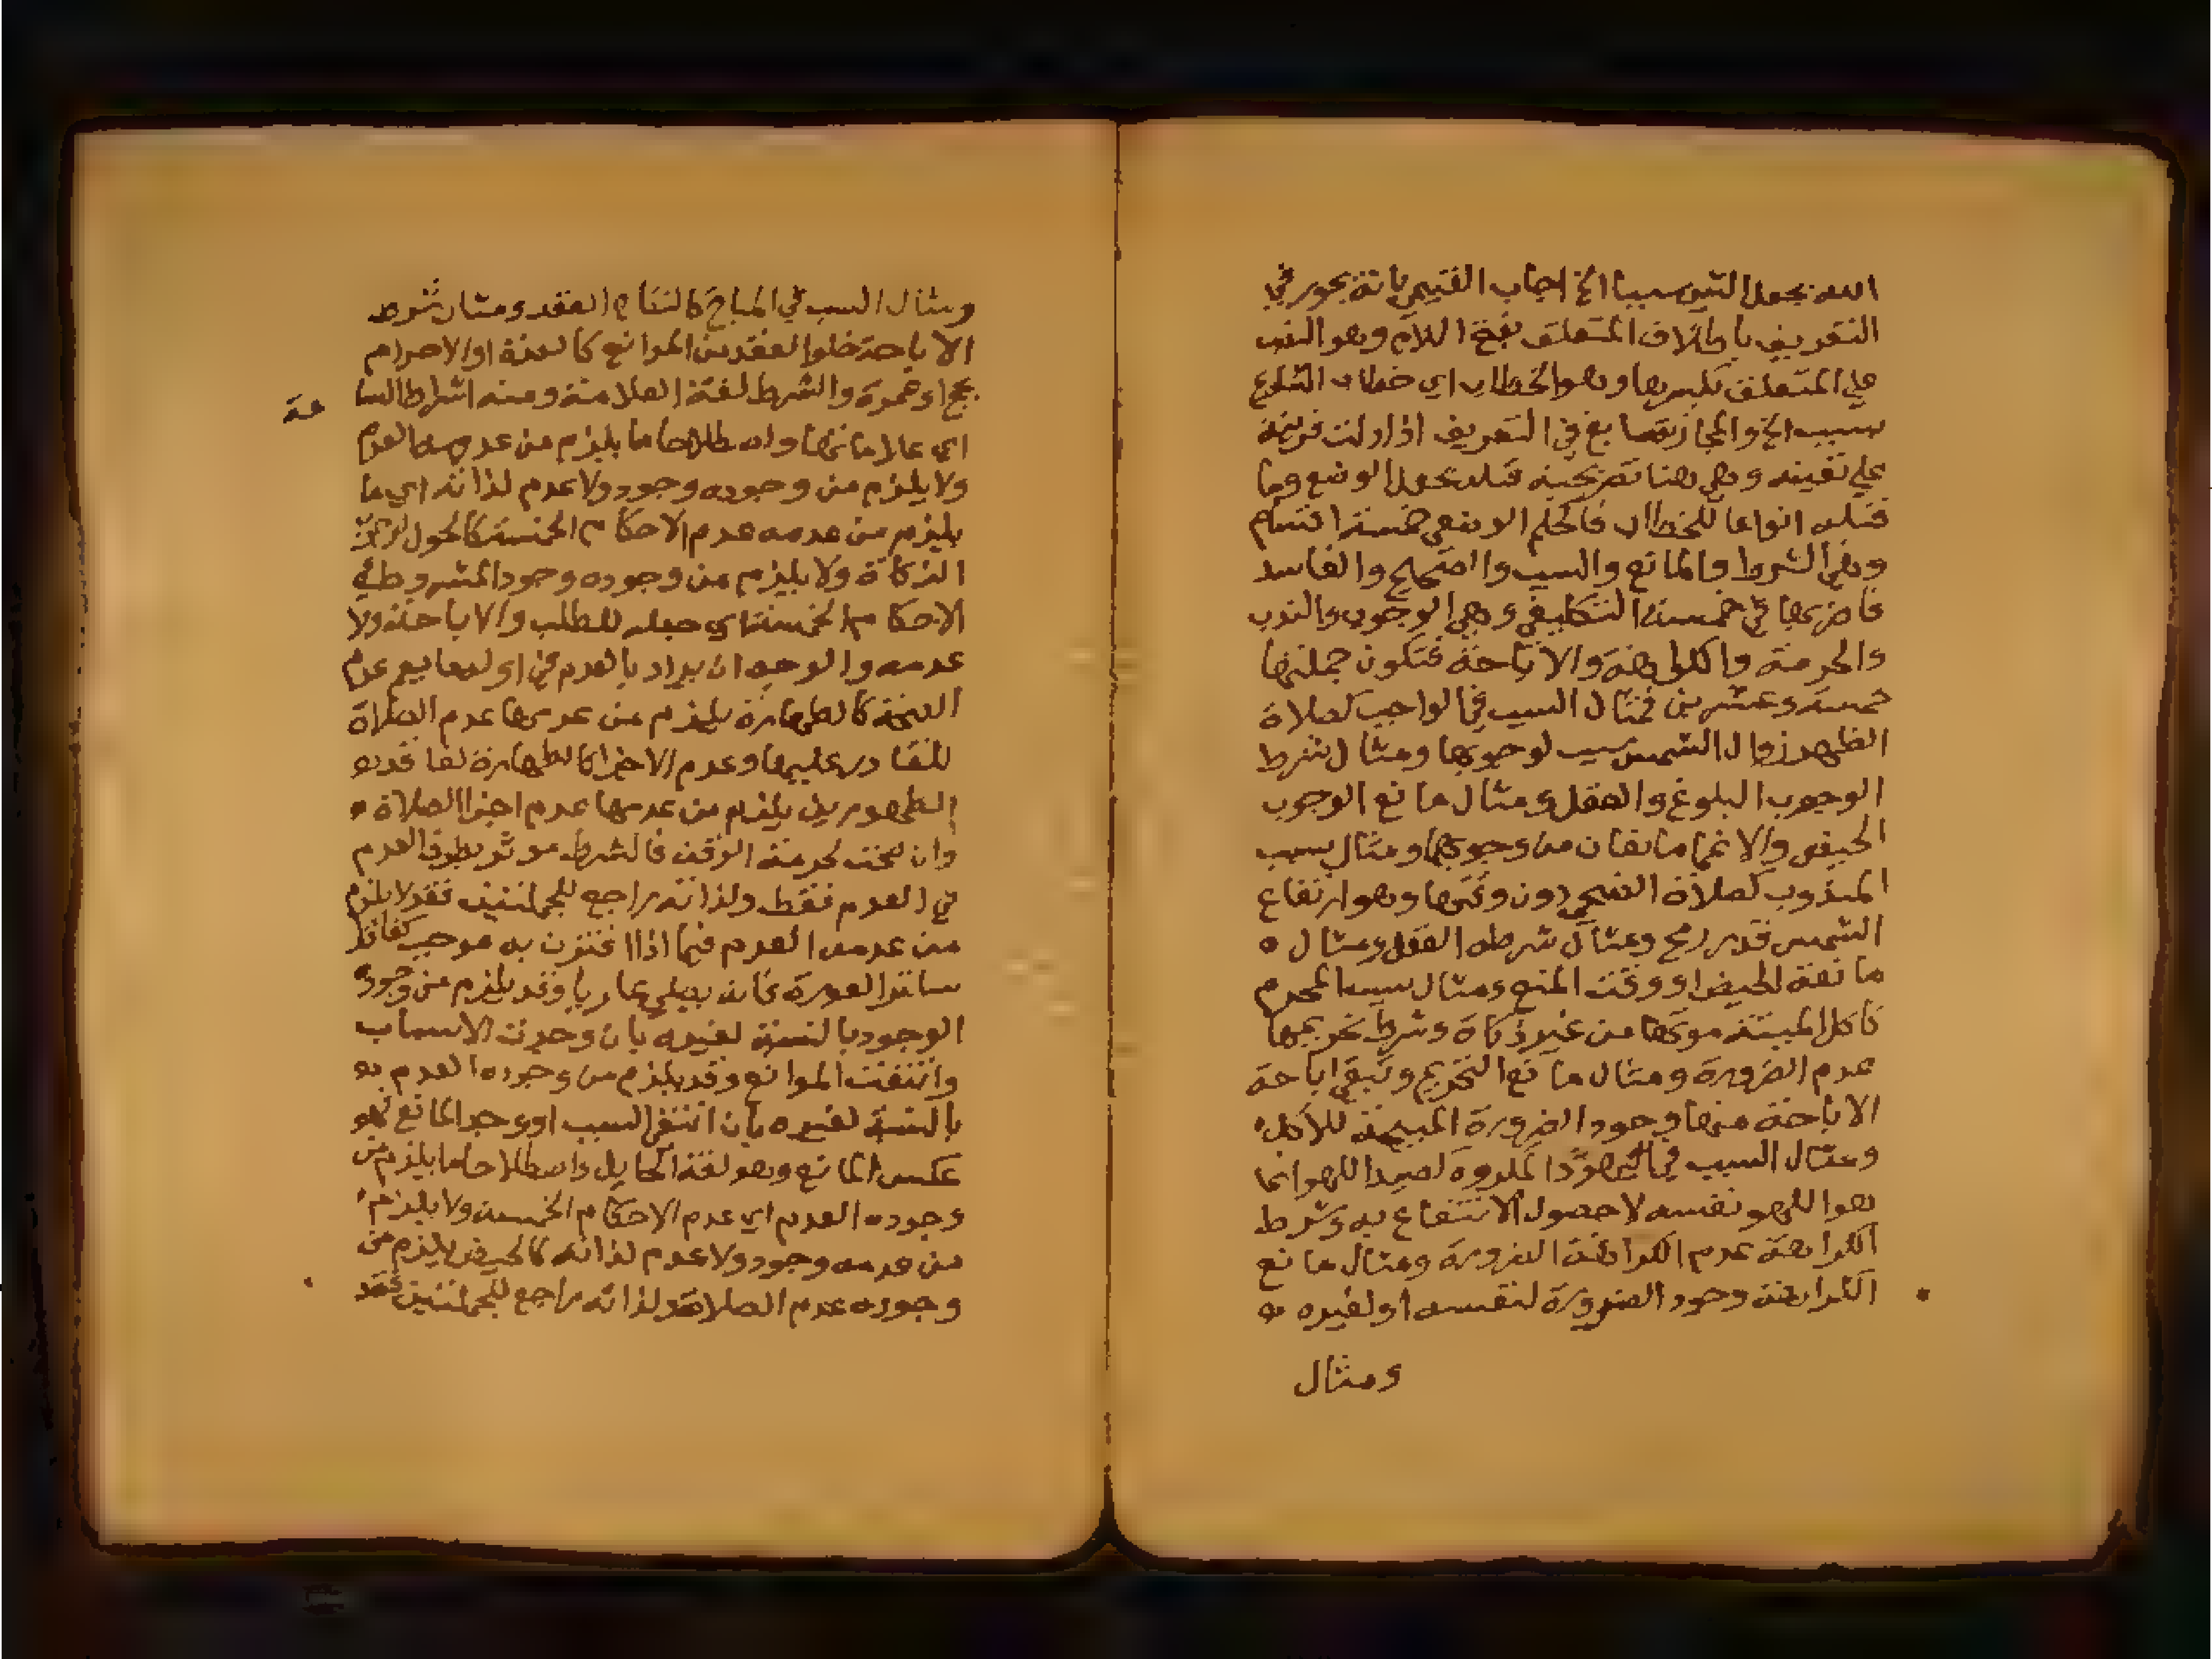 الله بجعل الشي سببا الخ اجاب القتيمي بانه تجوز في
التعريف باطلاق المتعلق بفتح اللام وهو النصب
علي المتعلق بكسرها وهو الخطاب اي خطاب الشارع
سبب الخ والمجاز شايع في التعريف اذا دلت قرينة
علي تعيينه وهي هنا تصريحه قبله بجعل الوضع وما
قبله انواعا للخطاب فالحكم الوضعي خمسة اقسام
وهي الشرط والمانع والسبب والصحيح والفاسد
فاضربها في خمسة التكليفي وهي الوجوب والندب
والحرمة والكراهة والاباحة فتكون جملتها
خمسة وعشرين فمثال السبب في الواجب كصلاة
الظهر زوال الشمس سبب لوجوبها ومثال شرط
الوجوب البلوغ والعقل ومثال مانع الوجوب
الحيض والاغما مانعان من وجوبها ومثال سبب
المندوب كصلاة الضحي دون وقتها وهو ارتفاع
الشمس قدر رمح ومثال شرطه العقل ومثال
مانعه الحيض او وقت المنع ومثال سبب المحرم
كاكل الميتة موتها من غير ذكاة وشرط تحريمها
عدم الضرورة ومثال مانع التحريم وتبقي اباحة
الاباحة منها وجود الضرورة المبيحة للاكل
ومثال السبب في المكروه كصيد اللهو انما
هو اللهو نفسه لا حصول الانتفاع به وشرط
الكراهة عدم الكراهة الضرورة ومثال مانع
الكراهة وجود الضرورة لنفسه او لغيره
ومثال
ومثال السبب في المباح كالنكاح العقد ومثال شرط
الاباحة خلو العقد من الموانع كالعدة او الاحرام
بحج او عمرة والشرط لغة العلامة ومنه اشراط السا
عة
اي علاماتها واصطلاحا ما يلزم من عدمه العدم
ولا يلزم من وجوده وجود ولا عدم لذاته اي ما
يلزم من عدمه عدم الاحكام الخمسة كالحول
الزكاة ولا يلزم من وجوده وجود المشروط في
الاحكام الخمسة اي جعله للطلب والاباحة ولا
عدمه والوجه ان يراد بالعدم في اوله ما يعم عدم
الصحة كالطهارة يلزم من عدمها عدم الصلاة
للقادر عليها وعدم الاجزا كالطهارة لفاقد
الطهورين يلزم من عدمها عدم اجزا الصلاة
وان صحت لحرمة الوقت فالشرط موثر بطرف العدم
في العدم فقط ولذاته راجع للجملتين فقد لا يلزم
من عدمه العدم فيما اذا اقترن به موجب كفاقد
ساتر العورة فانه يصلي عاريا وقد يلزم من وجوده
الوجود بالنسبة لغيره بان وجدت الاسباب
وانتفت الموانع وقد يلزم من وجوده العدم
بالنسبة لغيره بان انتفي السبب او وجد المانع فهو
عكس المانع وهو لغة الحايل واصطلاحا ما يلزم من
وجوده العدم اي عدم الاحكام الخمسة ولا يلزم
من عدمه وجود ولا عدم لذاته كالحيض يلزم من
وجوده عدم الصلاة ولذاته راجع للجملتين فقد